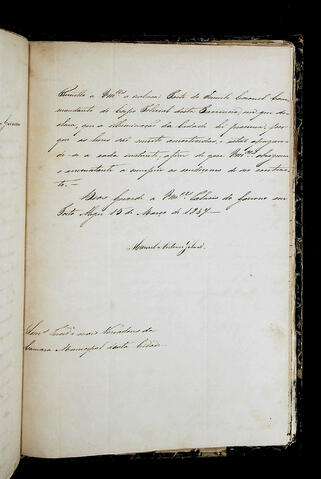 Remetto a Vm.ces a inclusa Parte do Tenente Coronel Com
mandante do Corpo Policial desta Provincia, em que de
clara, que a illuminação da Cidade hé pessima, por
que as luzes são muito amortecidas, e estão apagan
do-se a cada instante, a fim de que Vm.ces obriguem
o arrematante a cumprir as condições do seo contra
to.
Deos Guarde a Vm.ces Palacio do Governo em
Porto Alegre 15 de Março de 1847
Manoel Antonio Galvão
Sn.res Presid.e e mais Vereadores da
Camara Municipal desta Cidade